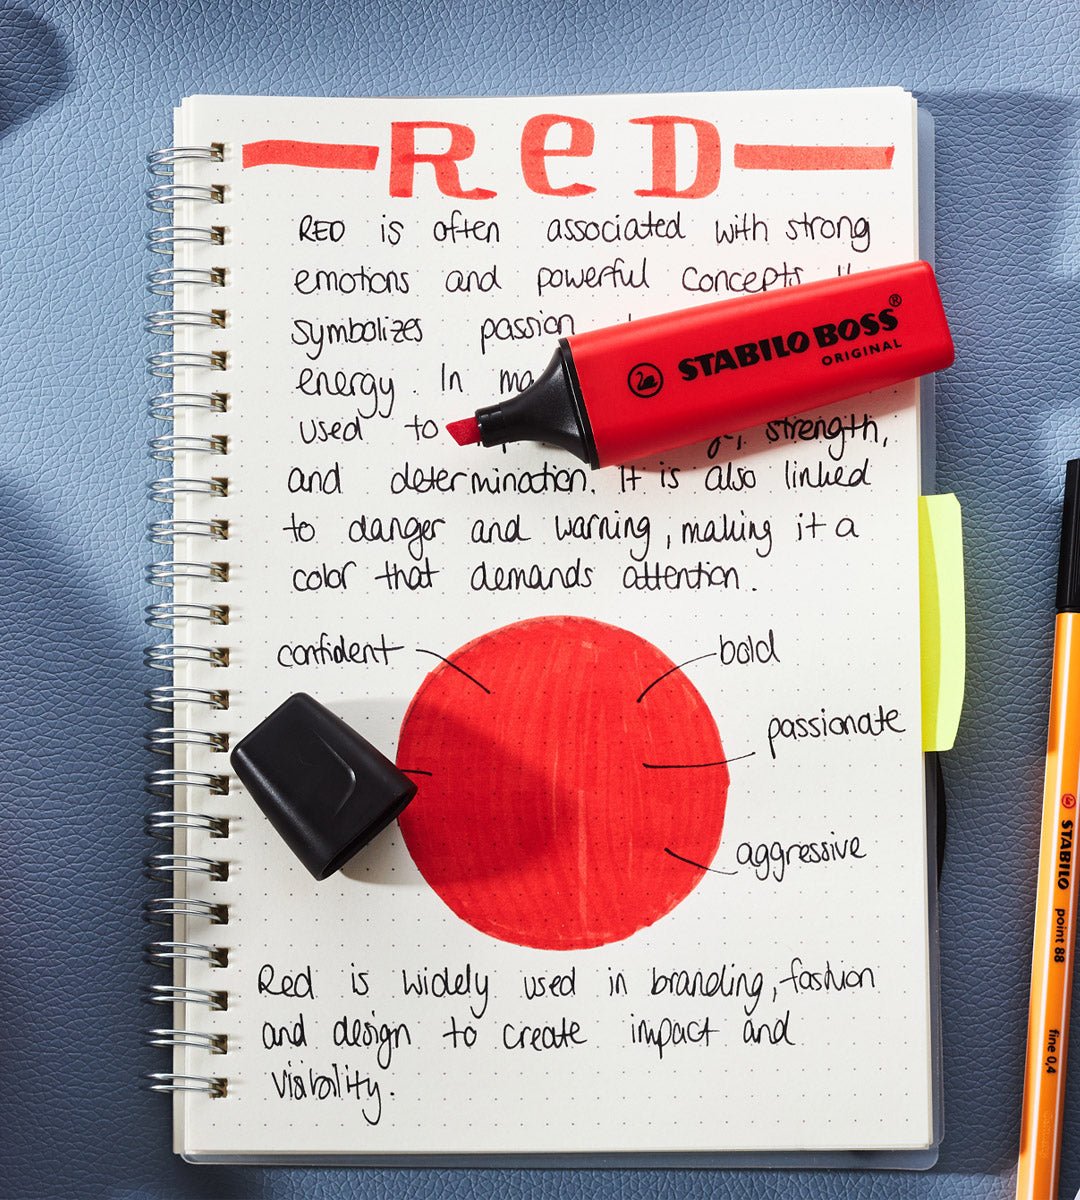 ReD
RED is often associated with strong
emotions and powerful concepts
symbolizes passion
energy. In
used to strength,
and determination. It is also linked
to danger and warning, making it a
color that demands attention.
confident
bold
passionate
aggressive
Red is widely used in branding, fashion
and design to create impact and
visibility.
STABILO BOSS®
ORIGINAL
STABILO point 88 fine 0,4